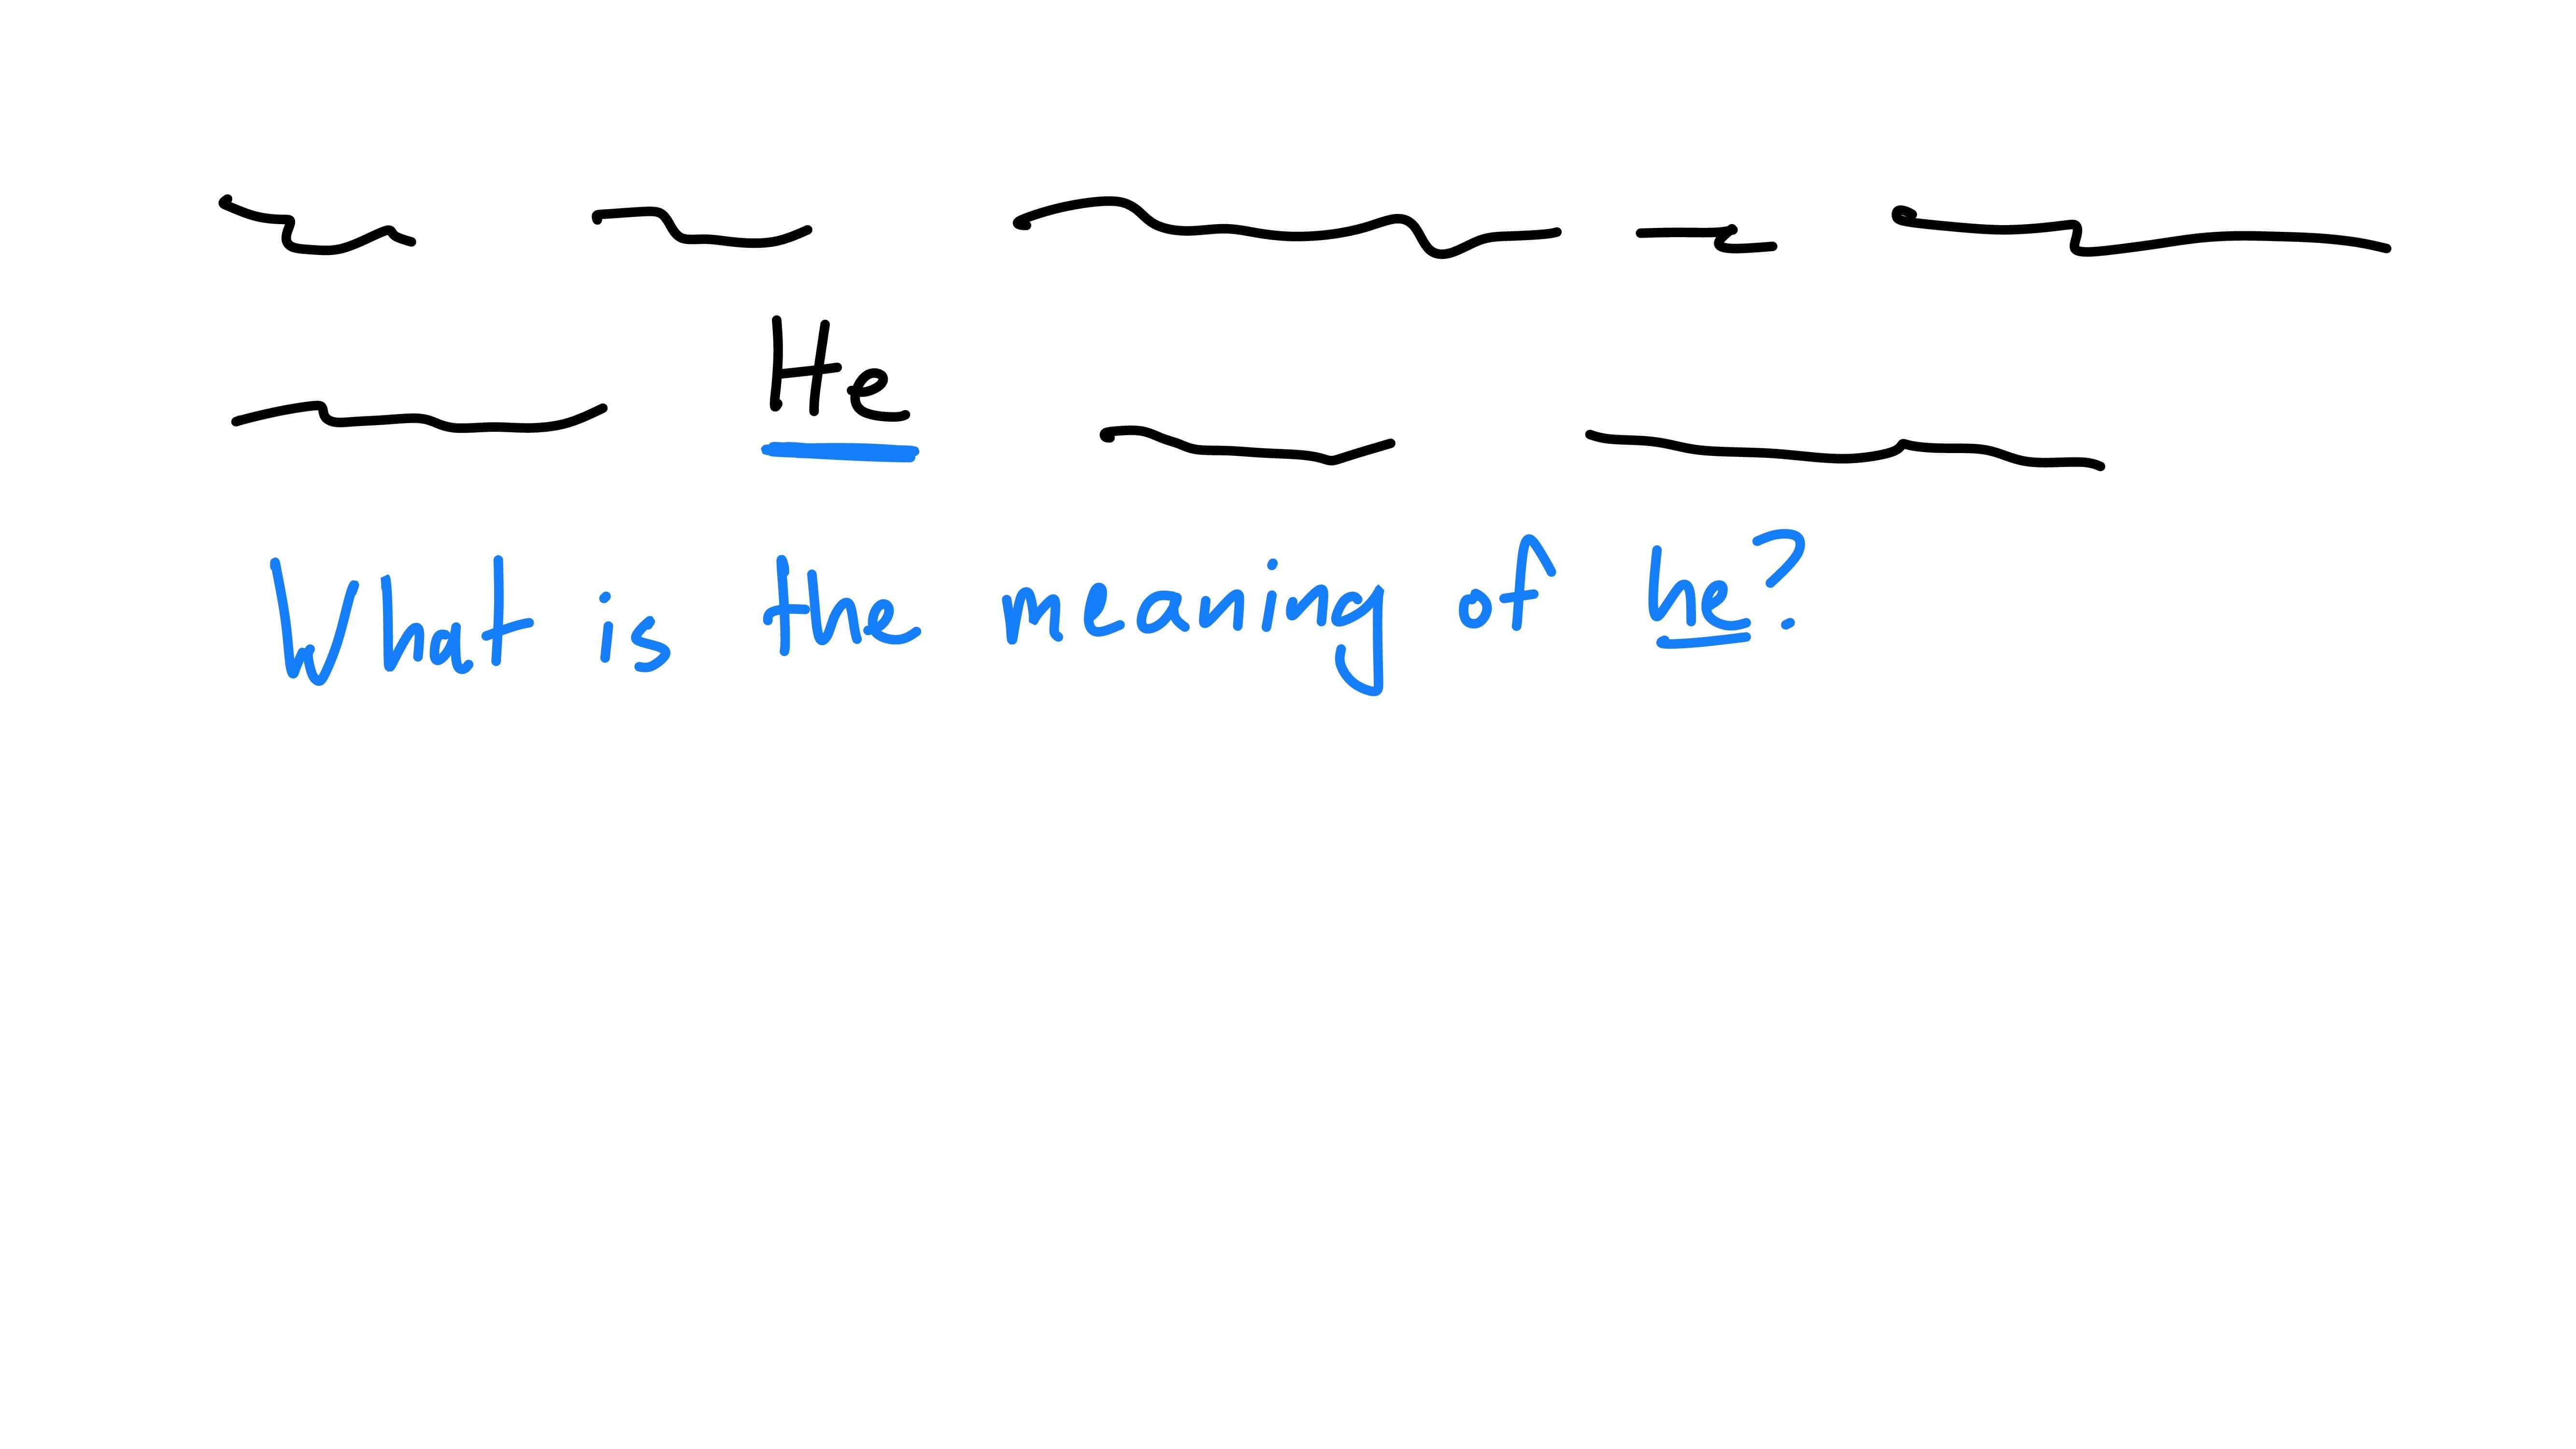 He
What is the meaning of he?